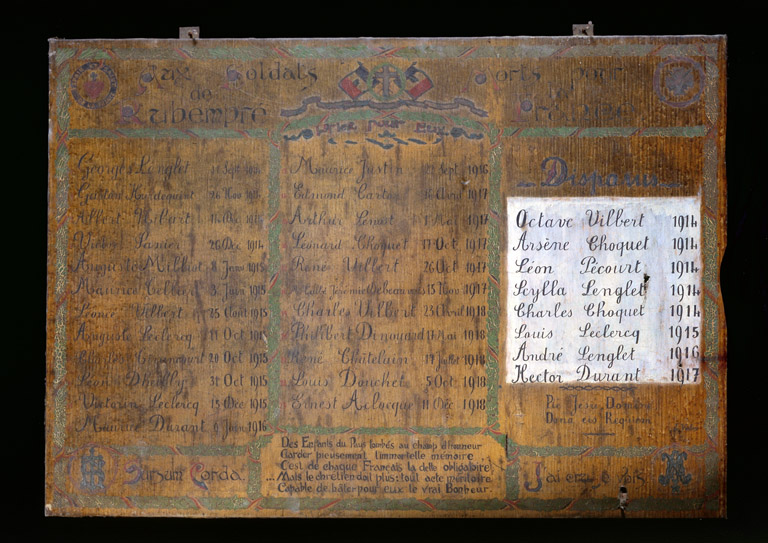 Aux Soldats Morts pour
de la
Rubempré
Priez pour eux
Georges Lenglet 1914
Gaston 26 Nov 1914
Albert Vilbert 1914
Victor 26 Déc 1914
Auguste 8 Janv 1915
Maurice 3 Juin 1915
Vilbert 25 Août 1915
Auguste Leclercq 11 Oct 1915
20 Oct 1915
Léon Dhailly 31 Oct 1915
Victorin Leclercq 15 Déc 1915
Maurice Durant 6 Janv 1916
Maurice Justin Sept 1916
Edmond Carton 16 Avril 1917
Arthur 1917
Léonard Choquet 17 Oct 1917
René Vilbert 26 Oct 1917
13 Nov 1917
Charles Vilbert 23 Avril 1918
Philibert Dinouard Mai 1918
René Châtelain Juillet 1918
Louis Douchet 5 Oct 1918
Ernest 11 Déc 1918
Disparus
Octave Vilbert 1914
Arsène Choquet 1914
Léon Pécourt 1914
Scylla Lenglet 1914
Charles Choquet 1914
Louis Leclercq 1915
André Lenglet 1916
Hector Durant 1917
Pie Jesu Domine
Dona eis Requiem
Sursum Corda
Des Enfants du Pays tombés au champ d'honneur
Garder pieusement l'immortelle mémoire
C'est de chaque Français la dette obligatoire
... Mais le chrétien doit plus: tout acte méritoire
Capable de hâter pour eux le vrai Bonheur.